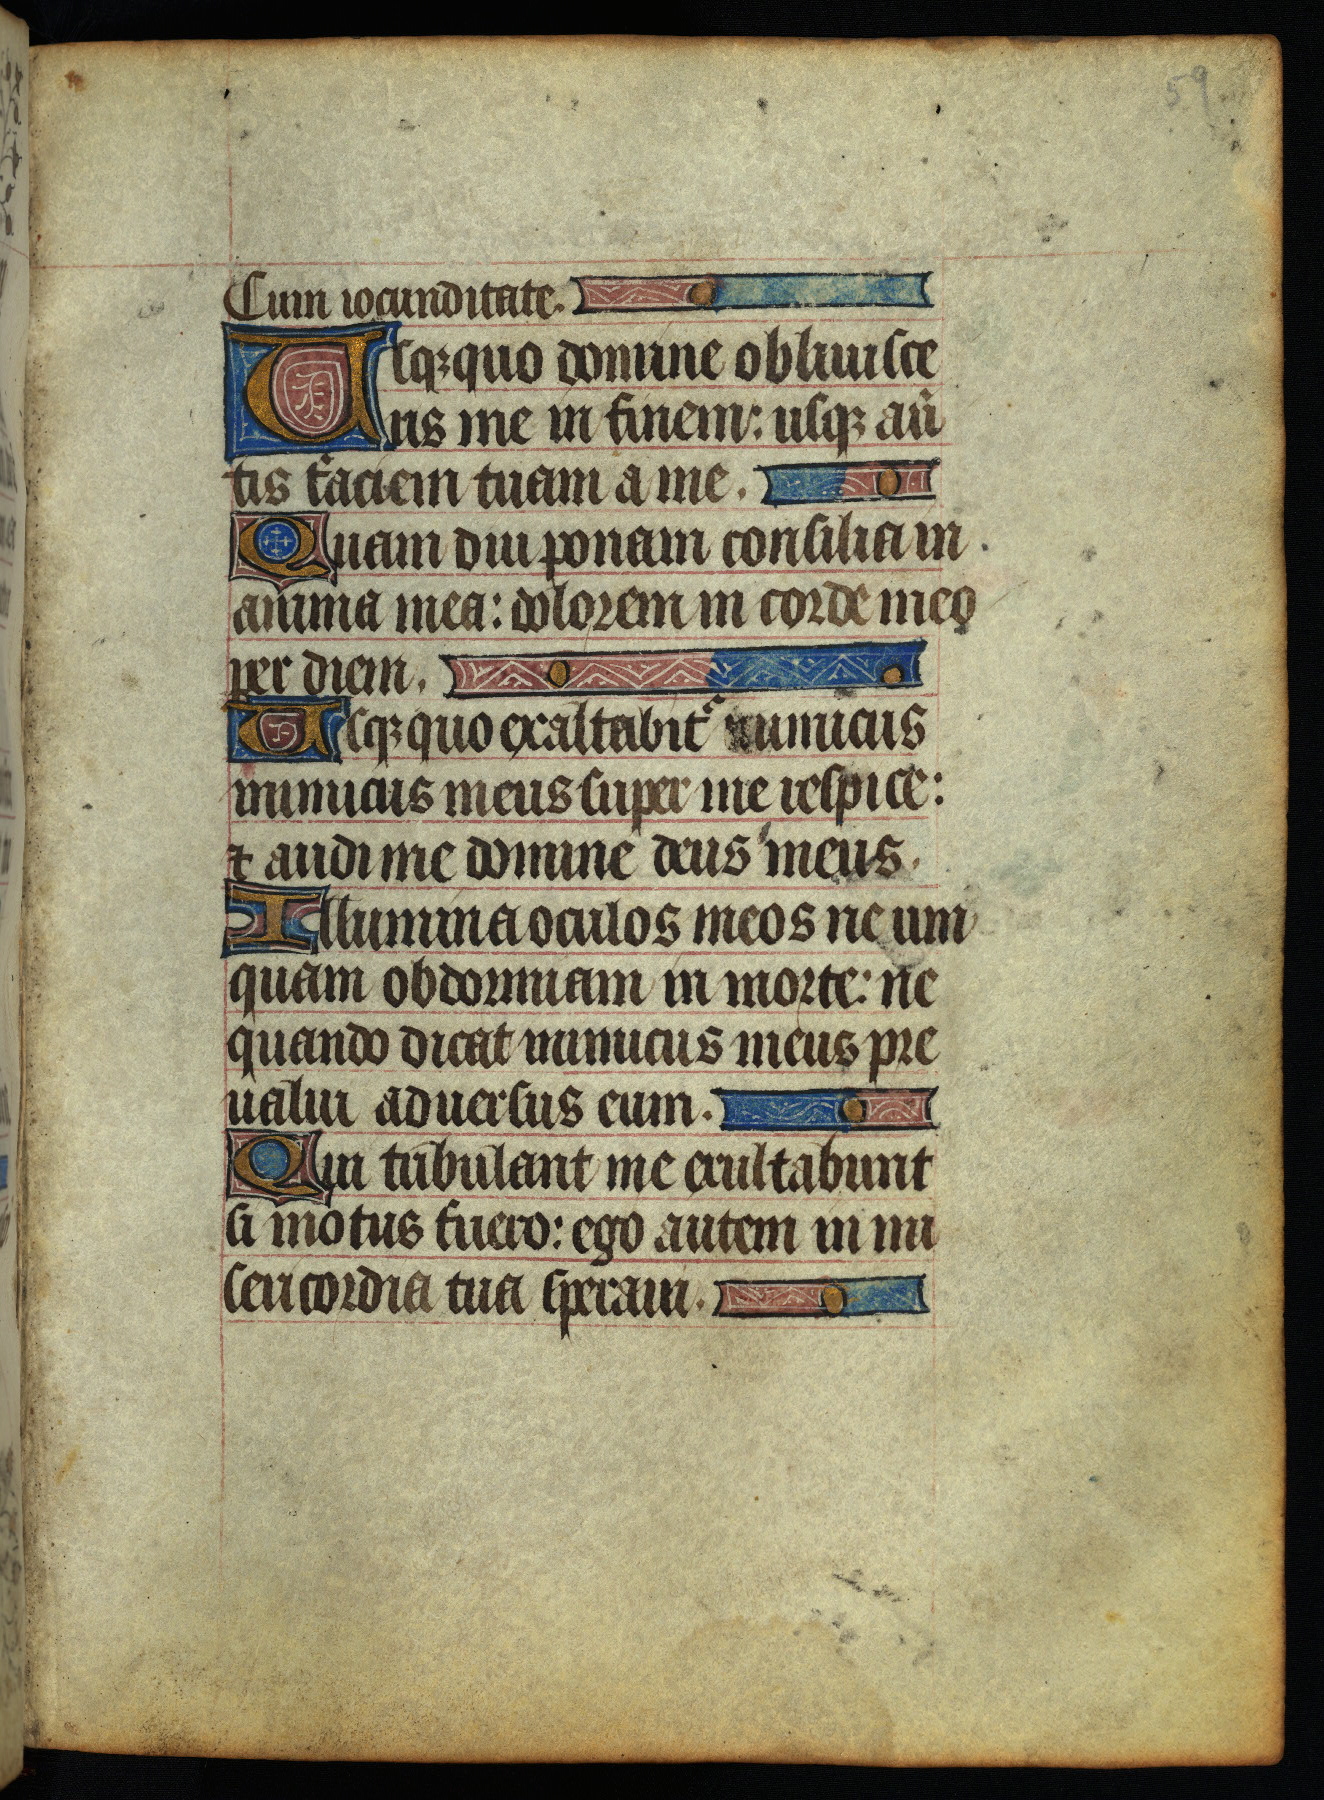 59
Cum iocunditate.
Usqꝫ quo domine obliuisce
ris me in finem: usqꝫ au̅
tis faciem tuam a me.
Quam diu ponam consilia in
anima mea: dolorem in corde meo
per diem.
Usqꝫ quo exaltabit᷑ inimicus
inimicus meus super me respice:
⁊ audi me domine deus meus.
Illumina oculos meos ne um
quam obdormiam in morte: ne
quando dicat inimicus meus pre
ualui aduersus eum.
Qui tribulant me exultabunt
si motus fuero: ego autem in mi
sericordia tua speraui.